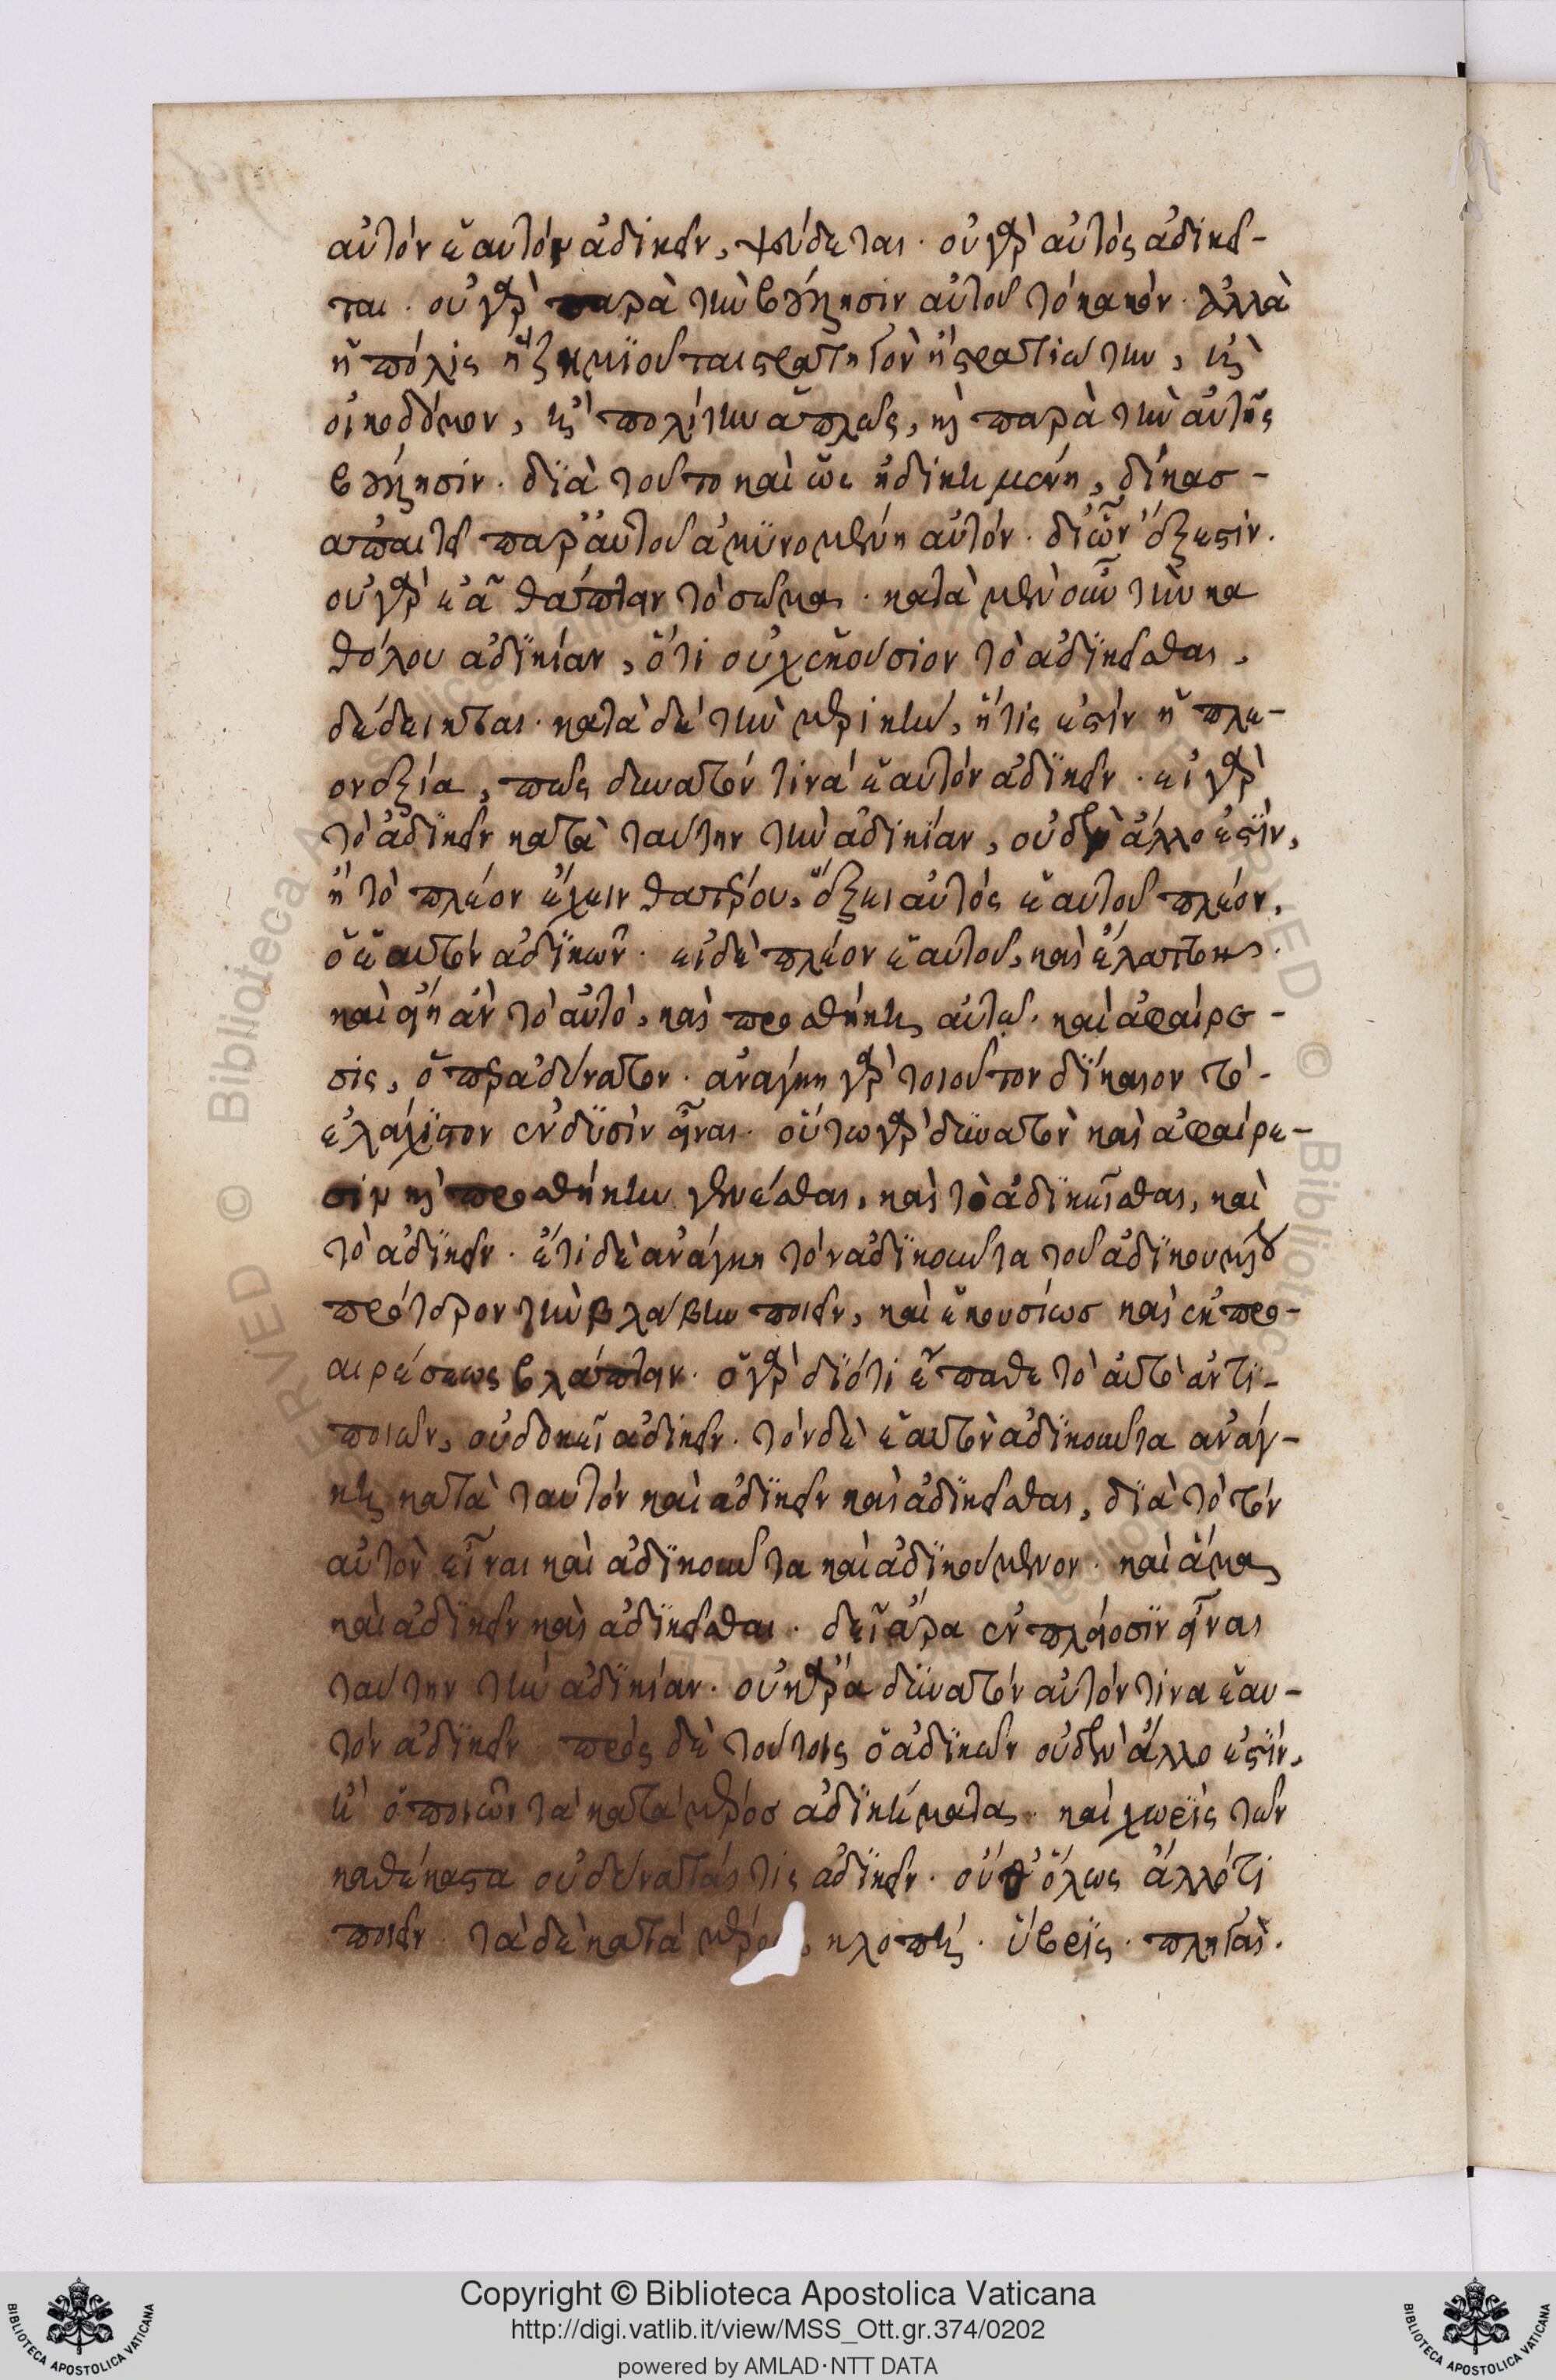 αὐτὸν ἑαυτόν ἀδικεῖν, ψεύδεται· οὐ γὰρ αὐτὸς ἀδικεῖ-
ται· οὐ γὰρ παρὰ τὴν βούλησιν αὐτοῦ τὸ κακόν· ἀλλὰ
ἡ πόλις ἡ ζημιοῦται στρατηγὸν ἢ στρατιώτην, ἢ
οἰκοδόμον, ἢ πολίτην ἁπλῶς, καὶ παρὰ τὴν αὐτῆς
βούλησιν· διὰ τοῦτο καὶ ὡς ἠδικημένη, δίκας
ἀπαιτεῖ παρ' αὐτοῦ ἀμυνομένη αὐτόν· δι' ὧν ἔξεστιν·
οὐ γὰρ ἐᾷ θάπτειν τὸ σῶμα· κατὰ μὲν οὖν τὴν κα
θόλου ἀδικίαν, ὅτι οὐχ ἑκούσιον τὸ ἀδικεῖσθαι,
δέδεικται· κατὰ δὲ τὴν μερικήν, ἥτις ἐστίν ἡ πλε-
ονεξία, πῶς δυνατόν τινά ἑαυτόν ἀδικεῖν· εἰ γὰρ
τὸ ἀδικεῖν κατὰ ταύτην τὴν ἀδικίαν, οὐδὲν ἄλλο ἐστίν,
ἢ τὸ πλέον ἔχειν θατέρου, ἕξει αὐτὸς ἑαυτοῦ πλέον,
ὁ ἑαυτόν ἀδικῶν· εἰ δὲ πλέον ἑαυτοῦ, καὶ ἔλαττον·
καὶ εἴη ἂν τὸ αὐτὸ, καὶ προσθήκη αὐτῷ· καὶ ἀφαίρε-
σις, ὅπερ ἀδύνατον· ἀνάγκη γὰρ τοιοῦτον δίκαιον τὸ-
ἐλάχιστον ἐν δυσὶν εἶναι· οὕτω γὰρ δυνατὸν καὶ ἀφαίρε-
σιν καὶ προσθήκην γενέσθαι, καὶ τὸ ἀδικεῖσθαι, καὶ
τὸ ἀδικεῖν· ἔτι δὲ ἀνάγκη τὸν ἀδικοῦντα τοῦ ἀδικουμένου
πρότερον τὴν βλάβην ποιεῖν, καὶ ἑκουσίως καὶ ἐκ προ-
αιρέσεως βλάπτειν· ὁ γὰρ διότι ἔπαθε τὸ αὐτὸ ἀντι-
ποιῶν, οὐ δοκεῖ ἀδικεῖν· τὸν δὲ ἑαυτὸν ἀδικοῦντα ἀνάγ-
κη κατὰ ταυτόν καὶ ἀδικεῖν καὶ ἀδικεῖσθαι, διὰ τὸ τόν
αὐτὸν εἶναι καὶ ἀδικοῦντα καὶ ἀδικούμενον· καὶ ἅμα
καὶ ἀδικεῖν καὶ ἀδικεῖσθαι· δεῖ ἄρα ἐν πλείοσιν εἶναι
ταύτην τὴν ἀδικίαν· οὐκ ἄρα δυνατόν αὐτόν τινα ἑαυ-
τόν ἀδικεῖν πρὸς δὲ τούτοις ὁ ἀδικῶν οὐδὲν ἄλλο ἐστίν,
ἢ ὁ ποιῶν τὰ κατὰ μέρος ἀδικήματα· καὶ χωρὶς τῶν
καθέκαστα οὐ δύναταί τις ἀδικεῖν· οὔθ' ὅλως ἄλλό τι
ποιεῖν· τὰ δὲ κατά μέρος, κλοπή· ὕβρις· πληγαὶ·
Copyright © Biblioteca Apostolica Vaticana
http://digi.vatlib.it/view/MSS_Ott.gr.374/0202
powered by AMLAD·NTT DATA
BIBLIOTECA APOSTOLICA VATICANA
BIBLIOTECA APOSTOLICA VATICANA